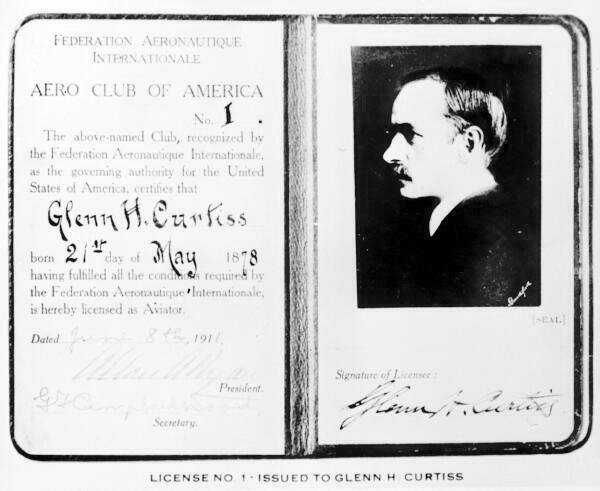 FEDERATION AERONAUTIQUE
INTERNATIONALE
AERO CLUB OF AMERICA
No. 1.
The above-named Club, recognized by
the Federation Aeronautique Internationale,
as the governing authority for the United
States of America, certifies that
Glenn H. Curtiss
born 21st day of May 1878
having fulfilled all the conditions required by
the Federation Aeronautique Internationale,
is hereby licensed as Aviator.
Dated June 8th, 1911
President.
G F Campbell Wood
Secretary.
[SEAL]
Signature of Licensee:
Glenn H. Curtiss
LICENSE NO. 1 - ISSUED TO GLENN H. CURTISS